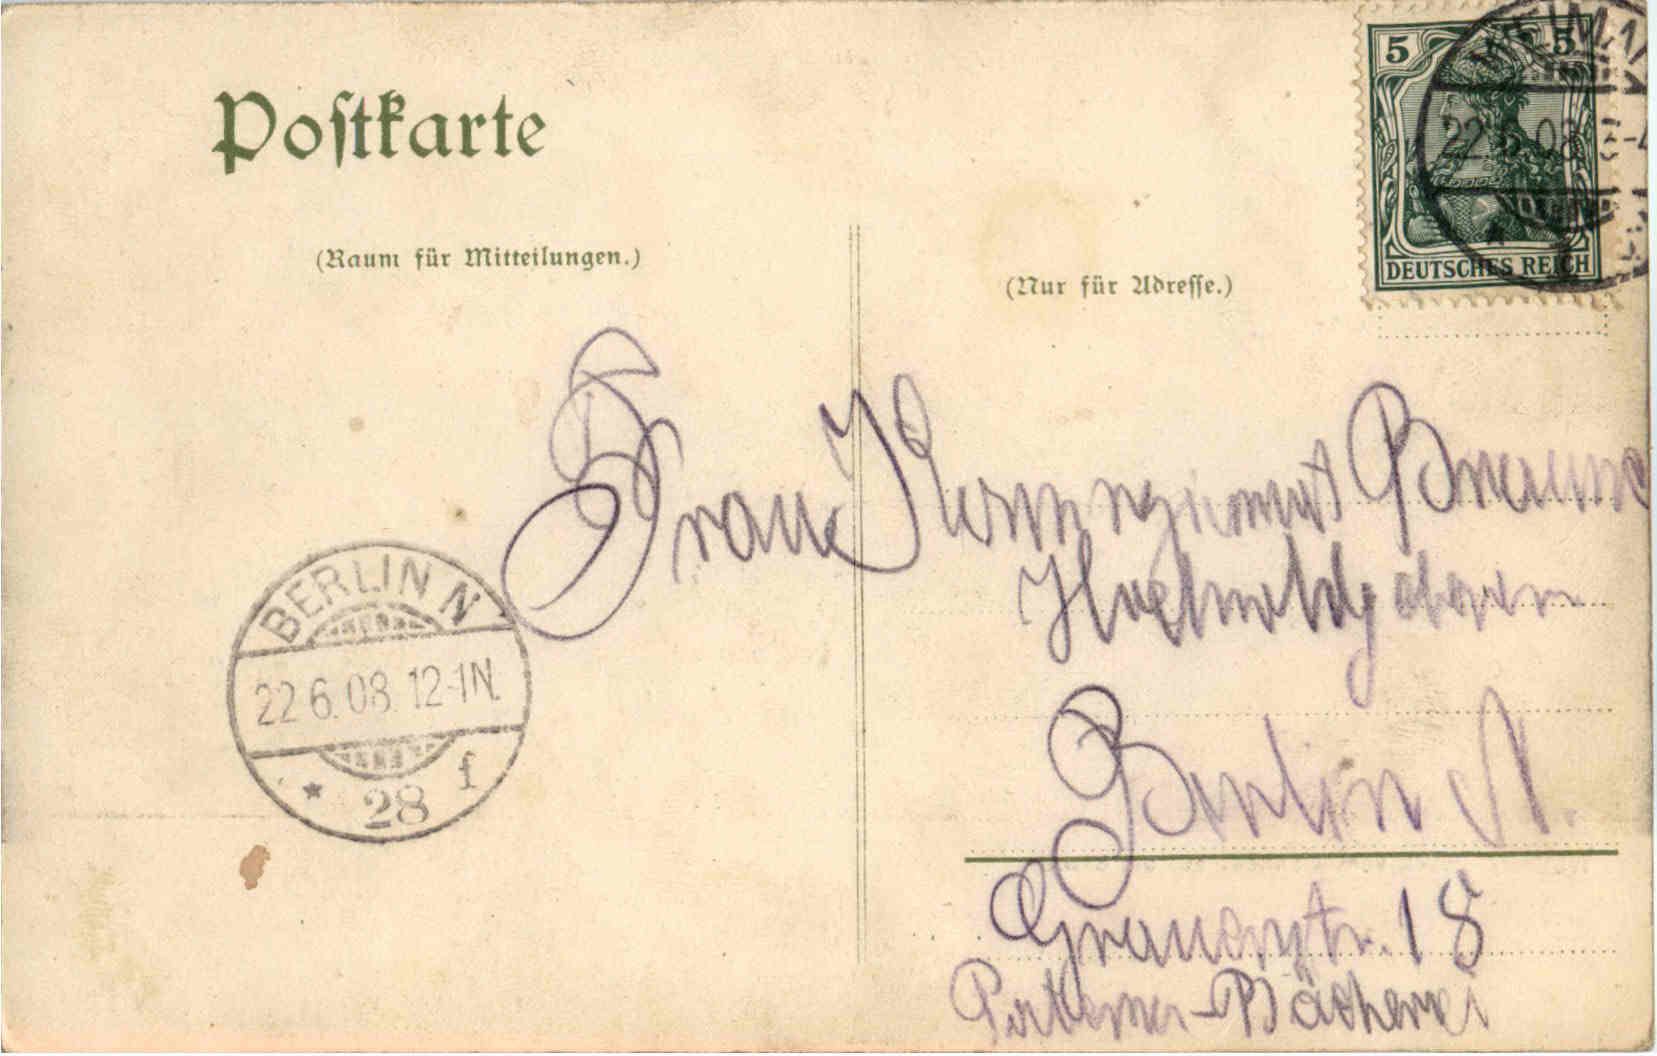 Postkarte
(Raum für Mitteilungen.)
(Nur für Adresse.)
5 5
DEUTSCHES REICH
22.6.08. 3-4
Frau Kommerzienrat Braun
Hochwohlgeboren
Berlin N.
Graunstr. 18
Bäckerei
BERLIN N
22.6.08. 12-1N.
* 28 f